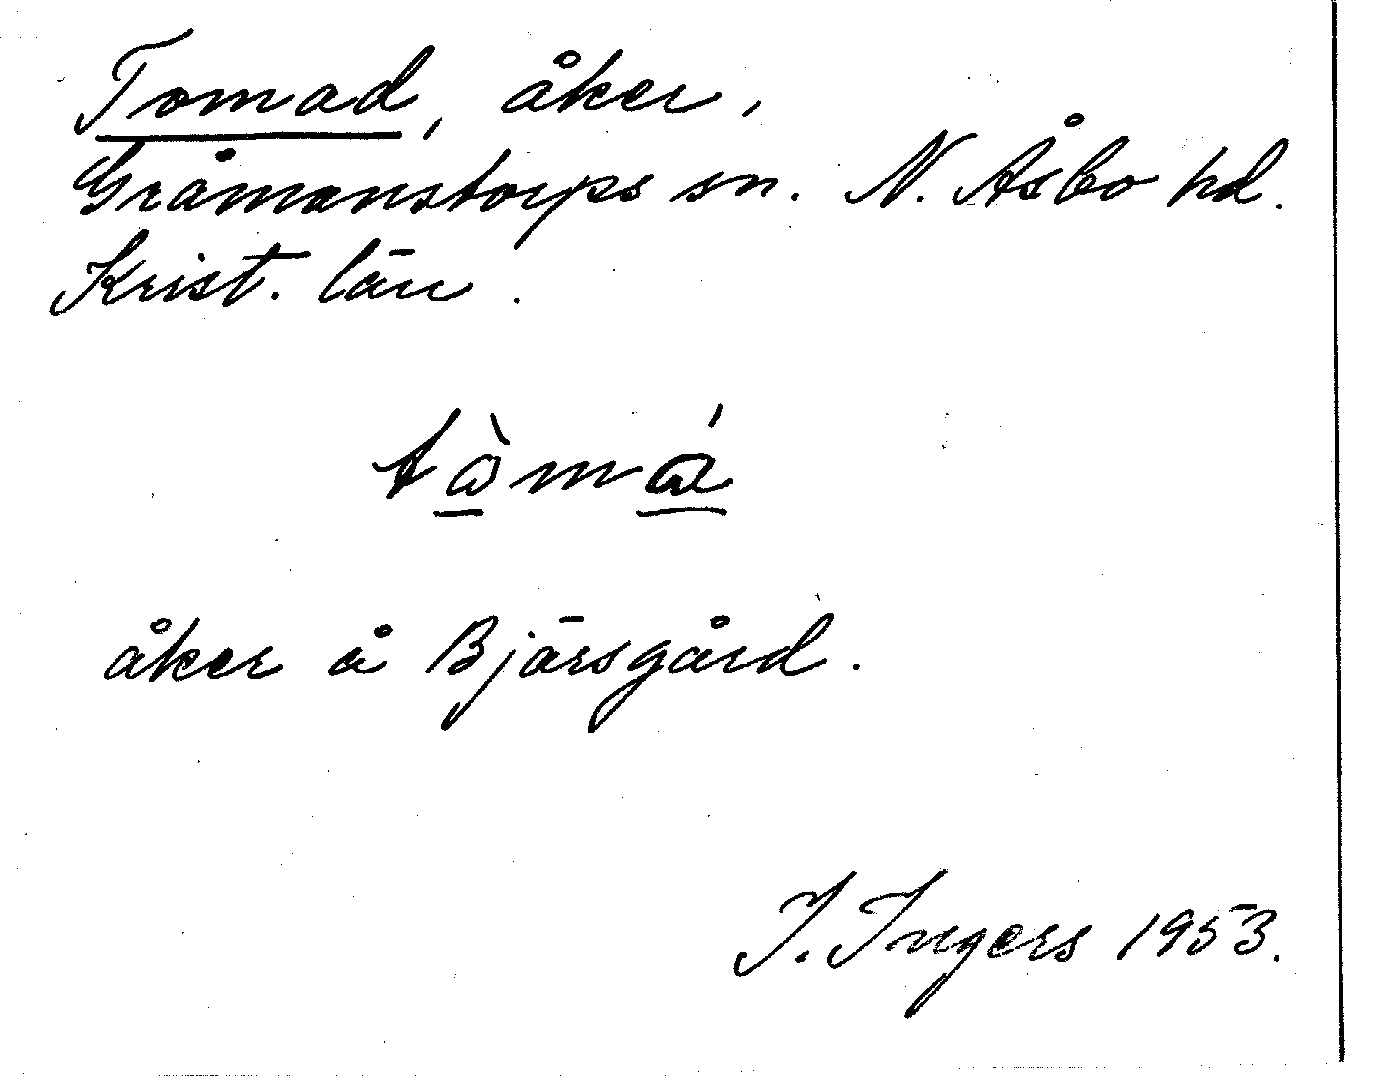 Tomad, åker,
Gråmanstorps sn. N. Åsbo hd.
Krist. län.
åker å Bjärsgård.
I. Ingers 1953.